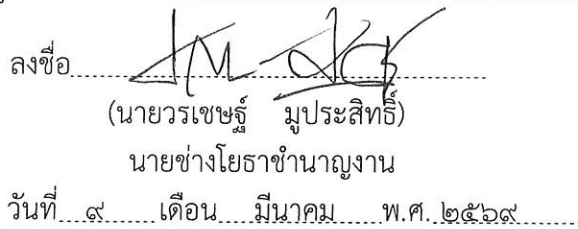 ลงชื่อ
(นายวรเชษฐ์ มูประสิทธิ์)
นายช่างโยธาชำนาญงาน
วันที่ ๙ เดือน มีนาคม พ.ศ. ๒๕๖๙